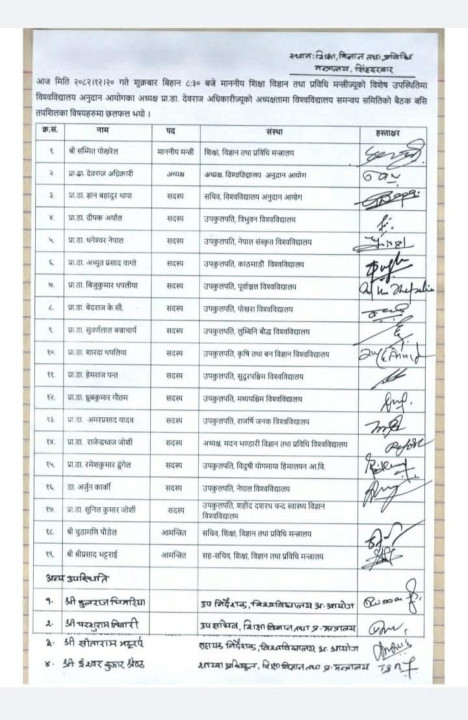 स्थान: शिक्षा, विज्ञान तथा प्रविधि
मन्त्रालय, सिंहदरबार
आज मिति २०८२।१२।२० गते शुक्रबार बिहान ८:३० बजे माननीय शिक्षा विज्ञान तथा प्रविधि मन्त्रीज्यूको विशेष उपस्थितिमा
विश्वविद्यालय अनुदान आयोगका अध्यक्ष प्रा.डा. देवराज अधिकारीज्यूको अध्यक्षतामा विश्वविद्यालय समन्वय समितिको बैठक बसि
तपशिलका विषयहरुमा छलफल भयो ।
क्र.सं. नाम पद संस्था हस्ताक्षर
१ श्री सस्मित पोखरेल माननीय मन्त्री शिक्षा, विज्ञान तथा प्रविधि मन्त्रालय
२ प्रा.डा. देवराज अधिकारी अध्यक्ष अध्यक्ष, विश्वविद्यालय अनुदान आयोग
३ प्रा.डा. ज्ञान बहादुर थापा सदस्य सचिव, विश्वविद्यालय अनुदान आयोग
४. प्रा.डा. दीपक अर्याल सदस्य उपकुलपति, त्रिभुवन विश्वविद्यालय
५ प्रा.डा. धनेश्वर नेपाल सदस्य उपकुलपति, नेपाल संस्कृत विश्वविद्यालय
६ प्रा.डा. अच्युत प्रसाद वाग्ले सदस्य उपकुलपति, काठमाडौं विश्वविद्यालय
७. प्रा.डा. बिजुकुमार थपलीया सदस्य उपकुलपति, पूर्वाञ्चल विश्वविद्यालय
८. प्रा.डा. बेदराज के.सी. सदस्य उपकुलपति, पोखरा विश्वविद्यालय
९ प्रा.डा. सुवर्णलाल बज्राचार्य सदस्य उपकुलपति, लुम्बिनि बौद्ध विश्वविद्यालय
१०. प्रा.डा. शारदा थपलिया सदस्य उपकुलपति, कृषि तथा बन विज्ञान विश्वविद्यालय
११. प्रा.डा. हेमराज पन्त सदस्य उपकुलपति, सुदूरपश्चिम विश्वविद्यालय
१२. प्रा.डा. ध्रुबकुमार गौतम सदस्य उपकुलपति, मध्यपश्चिम विश्वविद्यालय
१३ प्रा.डा. अमरप्रसाद यादव सदस्य उपकुलपति, राजर्षि जनक विश्वविद्यालय
१४. प्रा.डा. राजेन्द्रध्वज जोशी सदस्य अध्यक्ष, मदन भण्डारी विज्ञान तथा प्रविधि विश्वविद्यालय
१५. प्रा.डा. रमेशकुमार ढुंगेल सदस्य उपकुलपति, विदुषी योगमाया हिमालयन आ.वि.
१६. डा. अर्जुन कार्की सदस्य उपकुलपति, नेपाल विश्वविद्यालय
१७ प्रा.डा. सुनित कुमार जोशी सदस्य उपकुलपति, शहीद दशरथ चन्द स्वास्थ्य विज्ञान
विश्वविद्यालय
१८. श्री चुडामणि पौडेल आमन्त्रित सचिव, शिक्षा, विज्ञान तथा प्रविधि मन्त्रालय
१९. श्री श्रीप्रसाद भट्टराई आमन्त्रित सह-सचिव, शिक्षा, विज्ञान तथा प्रविधि मन्त्रालय
अन्य उपस्थिति
१. श्री उप निर्देशक, विश्वविद्यालय अ. आयोग
२. श्री परशुराम तिवारी उप सचिव, शिक्षा विज्ञान तथा प्र. मन्त्रालय
३. श्री सीताराम भट्टराई सहायक निर्देशक, विश्वविद्यालय अ. आयोग
४. श्री ईश्वर कुमार श्रेष्ठ शाखा अधिकृत, शिक्षा विज्ञान तथा प्र. मन्त्रालय